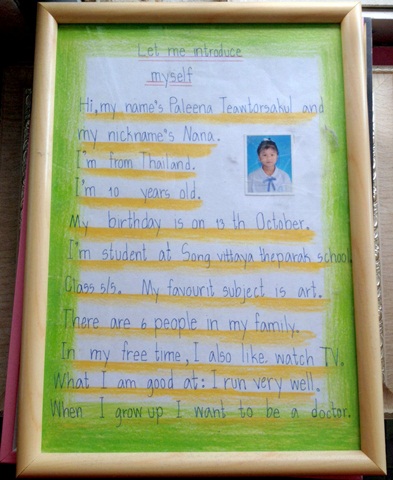 Let me introduce
myself
Hi, my name's Paleena Jeawtorsakul and
my nickname's Nana.
I'm from Thailand.
I'm 10 years old.
My birthday is on 13 th October.
I'm student at Song vittaya theparak school.
Class 5/5. My favourit subject is art.
There are 6 people in my family.
In my free time, I also like watch TV.
What I am good at: I run very well.
When I grow up I want to be a doctor.